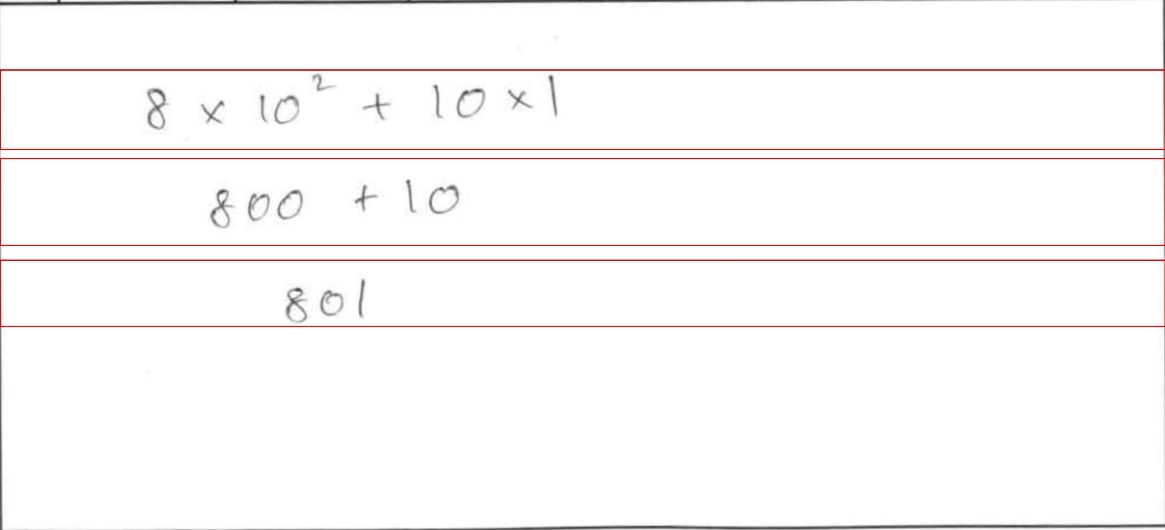 8 × 10² + 10 × 1
800 + 10
801